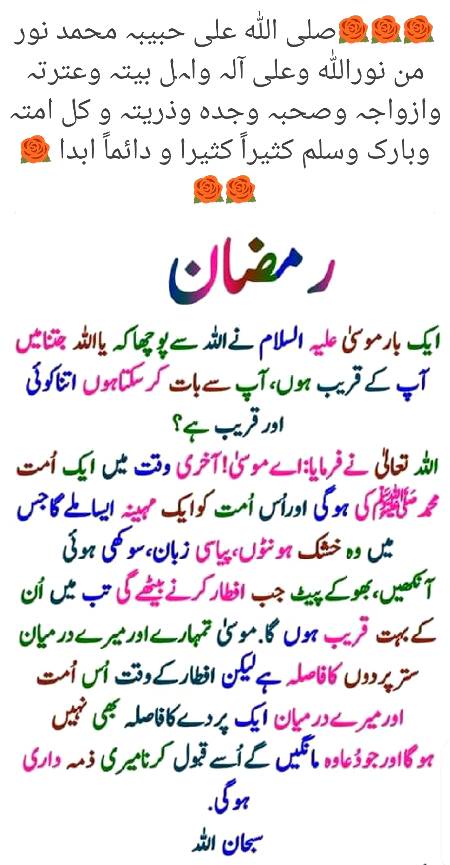 🌹🌹🌹صلی اللہ علی حبیبہ محمد نور
من نوراللہ وعلی آلہ واہل بیتہ وعترتہ
وازواجہ وصحبہ وجدہ وذریتہ و کل امتہ
وبارک وسلم کثیراً کثیرا و دائماً ابدا 🌹
🌹🌹
رمضان
ایک بار موسیٰ علیہ السلام نے اللہ سے پوچھا کہ یااللہ جتنا میں
آپ کے قریب ہوں، آپ سے بات کر سکتا ہوں اتنا کوئی
اور قریب ہے؟
اللہ تعالیٰ نے فرمایا: اے موسیٰ! آخری وقت میں ایک اُمت
محمد ﷺ کی ہوگی اور اُس اُمت کو ایک مہینہ ایسا ملے گا جس
میں وہ خشک ہونٹوں، پیاسی زبان، سوکھی ہوئی
آنکھیں، بھوکے پیٹ جب افطار کرنے بیٹھے گی تب میں اُن
کے بہت قریب ہوں گا. موسیٰ تمہارے اور میرے درمیان
ستر پردوں کا فاصلہ ہے لیکن افطار کے وقت اُس اُمت
اور میرے درمیان ایک پردے کا فاصلہ بھی نہیں
ہوگا اور جو دُعا وہ مانگیں گے اُسے قبول کرنا میری ذمہ داری
ہوگی.
سبحان اللہ